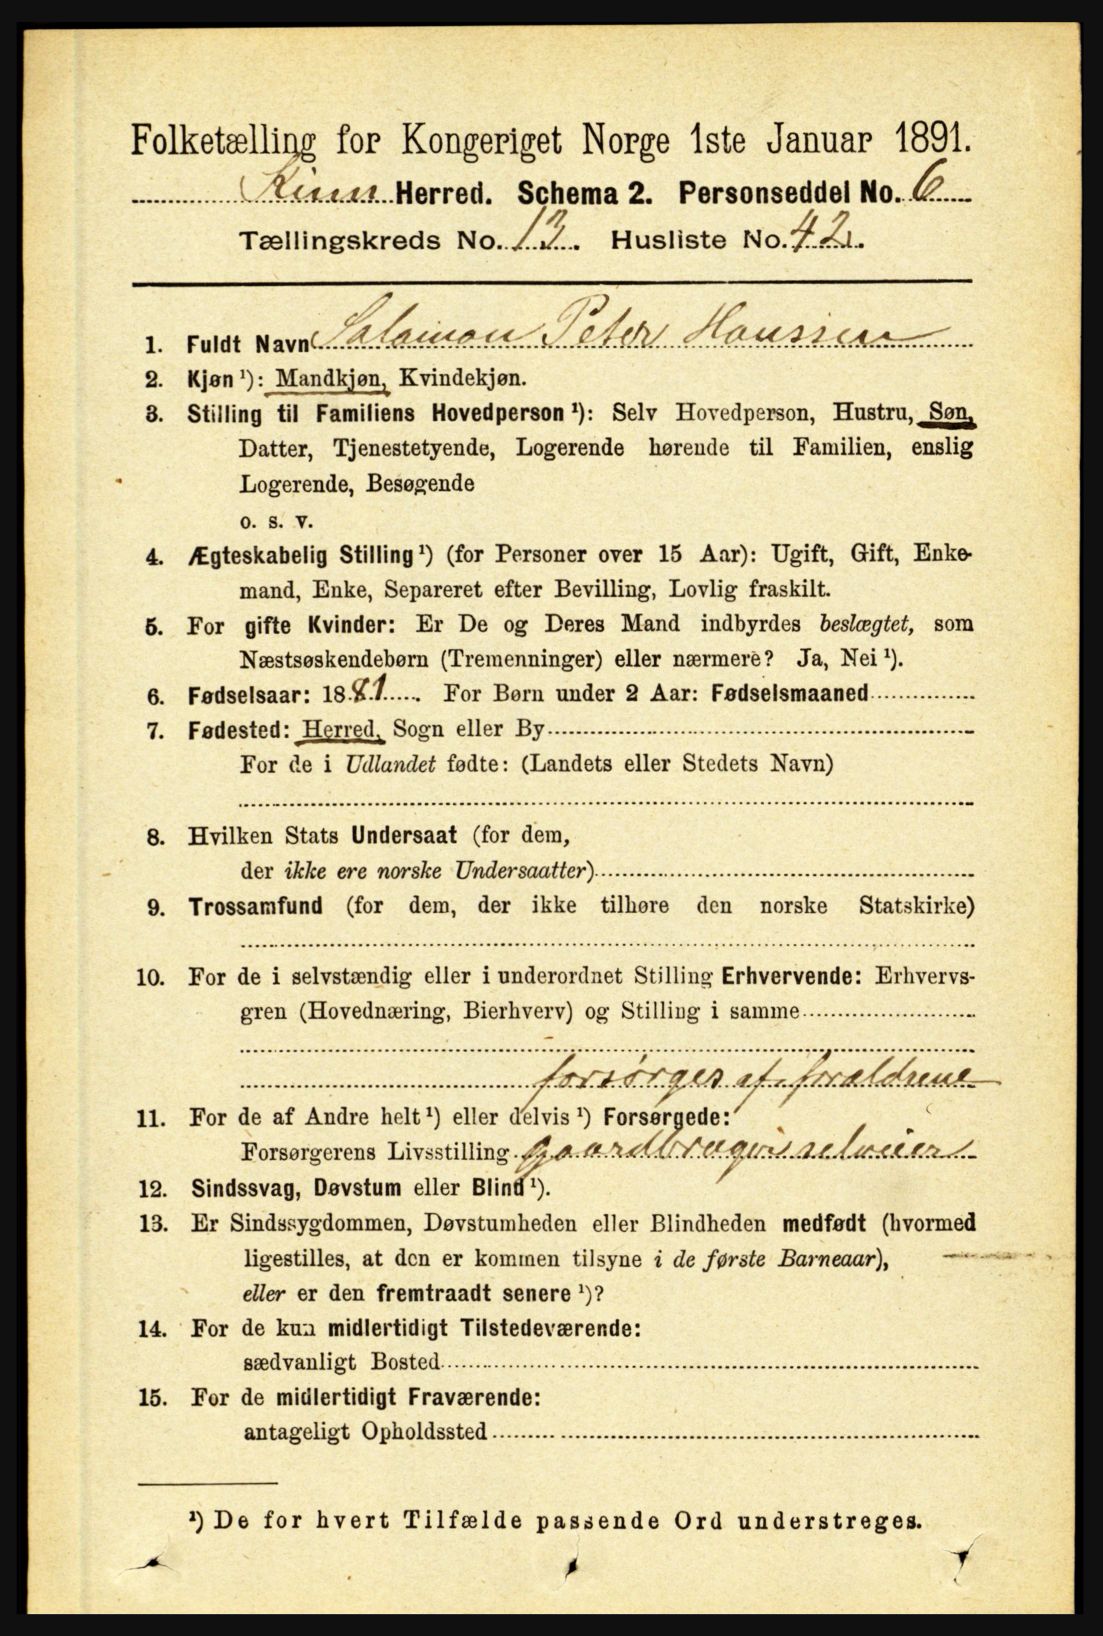 Folketælling for Kongeriget Norge 1ste Januar 1891.
Kinn Herred. Schema 2. Personseddel No. 6
Tællingskreds No. 13. Husliste No. 42.
1. Fuldt Navn Salamon Peter Hanssen
2. Kjøn ¹): Mandkjøn, Kvindekjøn.
3. Stilling til Familiens Hovedperson ¹): Selv Hovedperson, Hustru, Søn,
Datter, Tjenestetyende, Logerende hørende til Familien, enslig
Logerende, Besøgende
o. s. v.
4. Ægteskabelig Stilling ¹) (for Personer over 15 Aar): Ugift, Gift, Enke-
mand, Enke, Separeret efter Bevilling, Lovlig fraskilt.
5. For gifte Kvinder: Er De og Deres Mand indbyrdes beslægtet, som
Næstsøskendebørn (Tremenninger) eller nærmere? Ja, Nei ¹).
6. Fødselsaar: 1881. For Børn under 2 Aar: Fødselsmaaned
7. Fødested: Herred, Sogn eller By
For de i Udlandet fødte: (Landets eller Stedets Navn)
8. Hvilken Stats Undersaat (for dem,
der ikke ere norske Undersaatter)
9. Trossamfund (for dem, der ikke tilhøre den norske Statskirke)
10. For de i selvstændig eller i underordnet Stilling Erhvervende: Erhvervs-
gren (Hovednæring, Bierhverv) og Stilling i samme
forsørges af foraldrene
11. For de af Andre helt ¹) eller delvis ¹) Forsørgede:
Forsørgerens Livsstilling gaardbruger selveier
12. Sindssvag, Døvstum eller Blind ¹).
13. Er Sindssygdommen, Døvstumheden eller Blindheden medfødt (hvormed
ligestilles, at den er kommen tilsyne i de første Barneaar),
eller er den fremtraadt senere ¹)?
14. For de kun midlertidigt Tilstedeværende:
sædvanligt Bosted
15. For de midlertidigt Fraværende:
antageligt Opholdssted
¹) De for hvert Tilfælde passende Ord understreges.